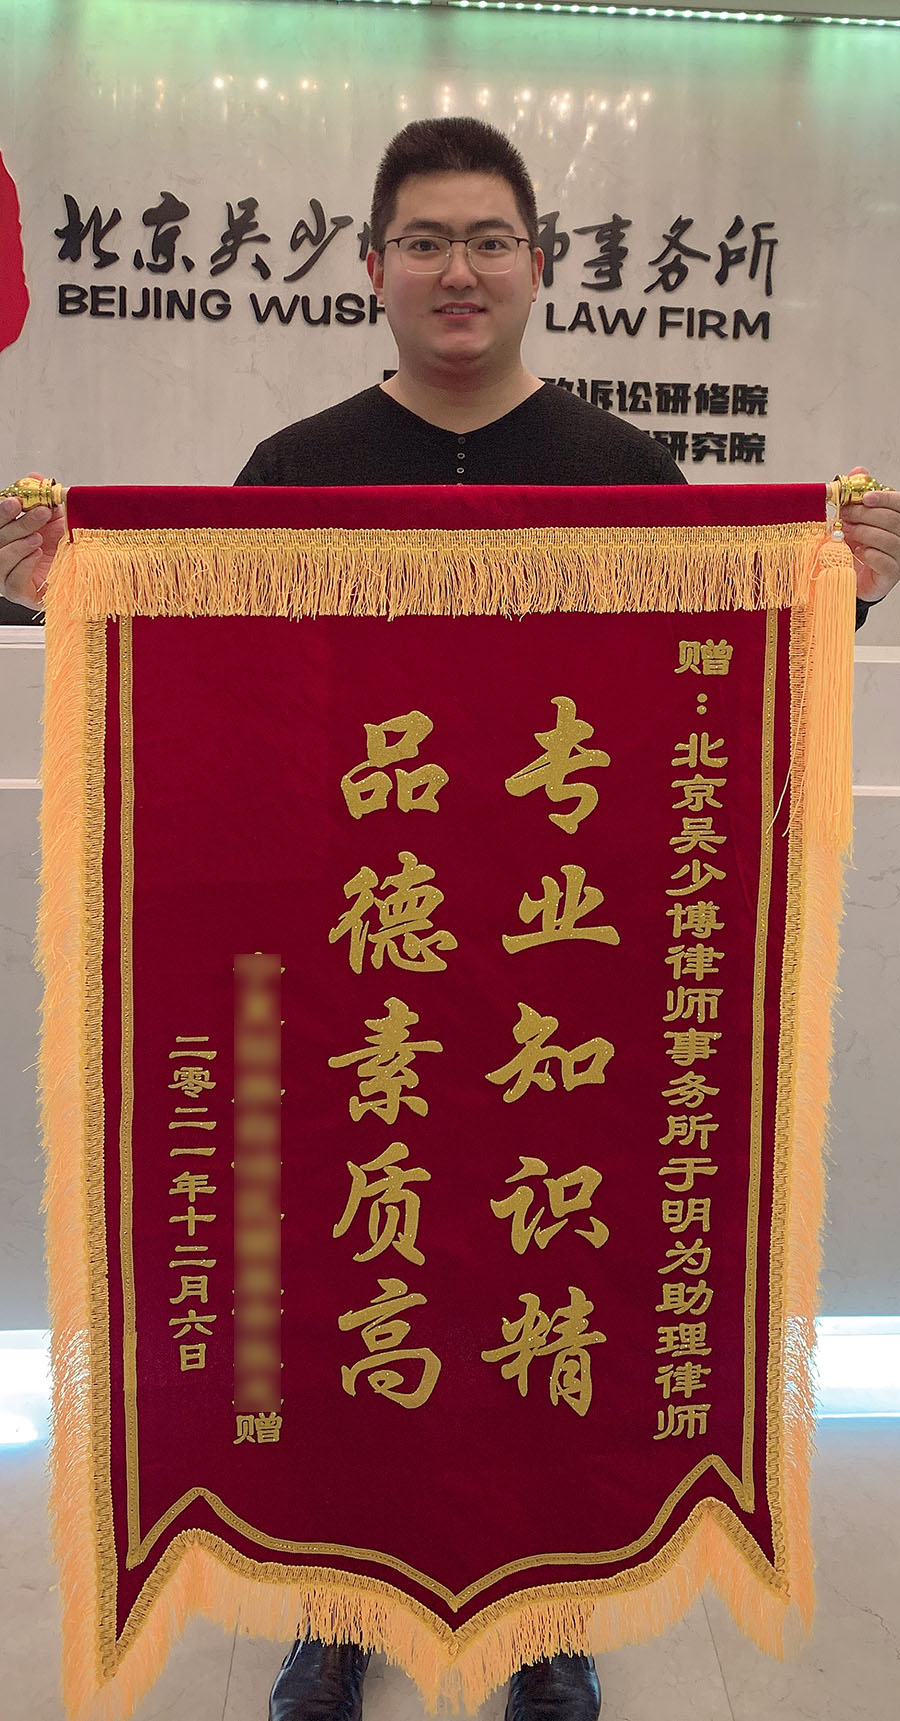 北京吴少 师事务所
BEIJING WUSH LAW FIRM
诉讼研修院
研究院
赠：北京吴少博律师事务所于明为助理律师
专业知识精
品德素质高
赠
二零二一年十二月六日